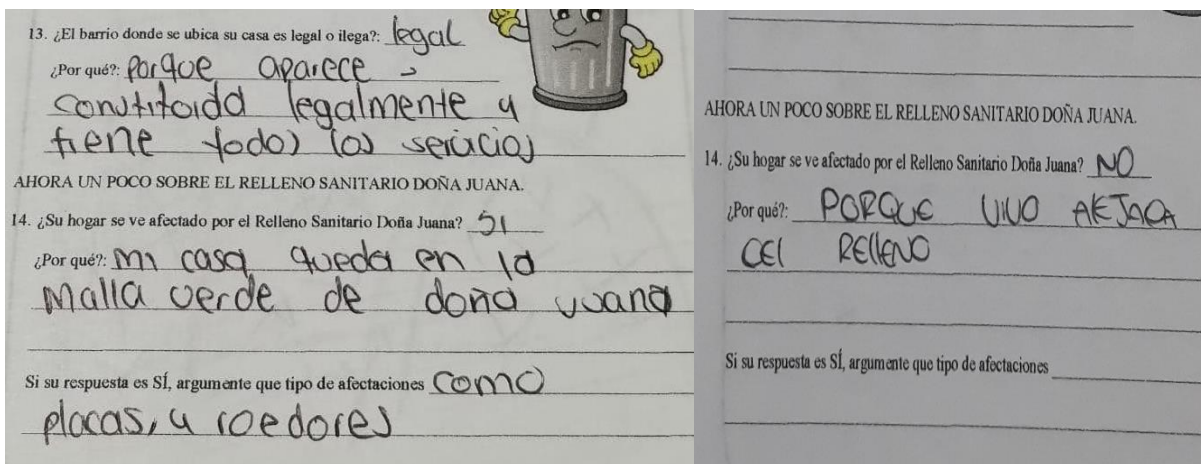 13. ¿El barrio donde se ubica su casa es legal o ilega?: legal
¿Por qué?: porque aparece
constitoida legalmente y
tiene todos los servicios
AHORA UN POCO SOBRE EL RELLENO SANITARIO DOÑA JUANA.
14. ¿Su hogar se ve afectado por el Relleno Sanitario Doña Juana? SI
¿Por qué?: mi casa queda en la
Malla verde de doña juana
Si su respuesta es SÍ, argumente que tipo de afectaciones como
placas, y roedores
AHORA UN POCO SOBRE EL RELLENO SANITARIO DOÑA JUANA.
14. ¿Su hogar se ve afectado por el Relleno Sanitario Doña Juana? NO
¿Por qué?: PORQUE VIVO AlEJADA
DEl REllENO
Si su respuesta es SÍ, argumente que tipo de afectaciones